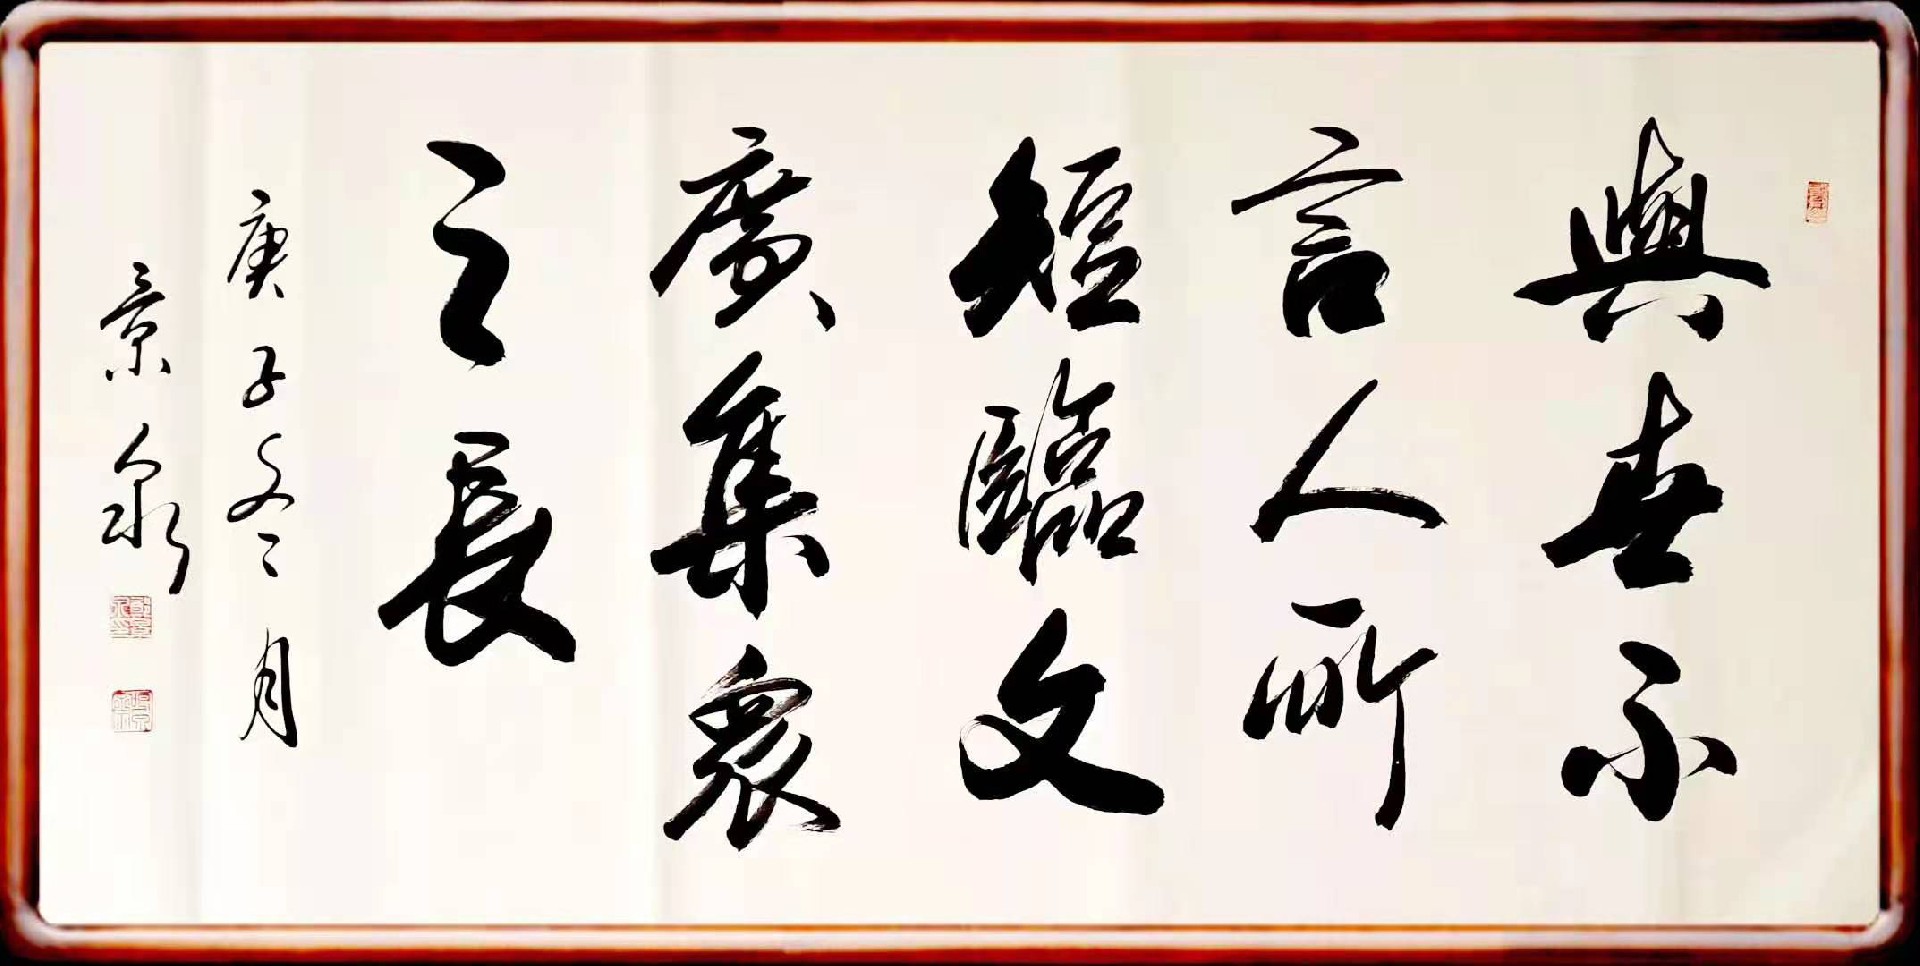 與世不
言人所
短臨文
廣集眾
之長
庚子冬月
景泉